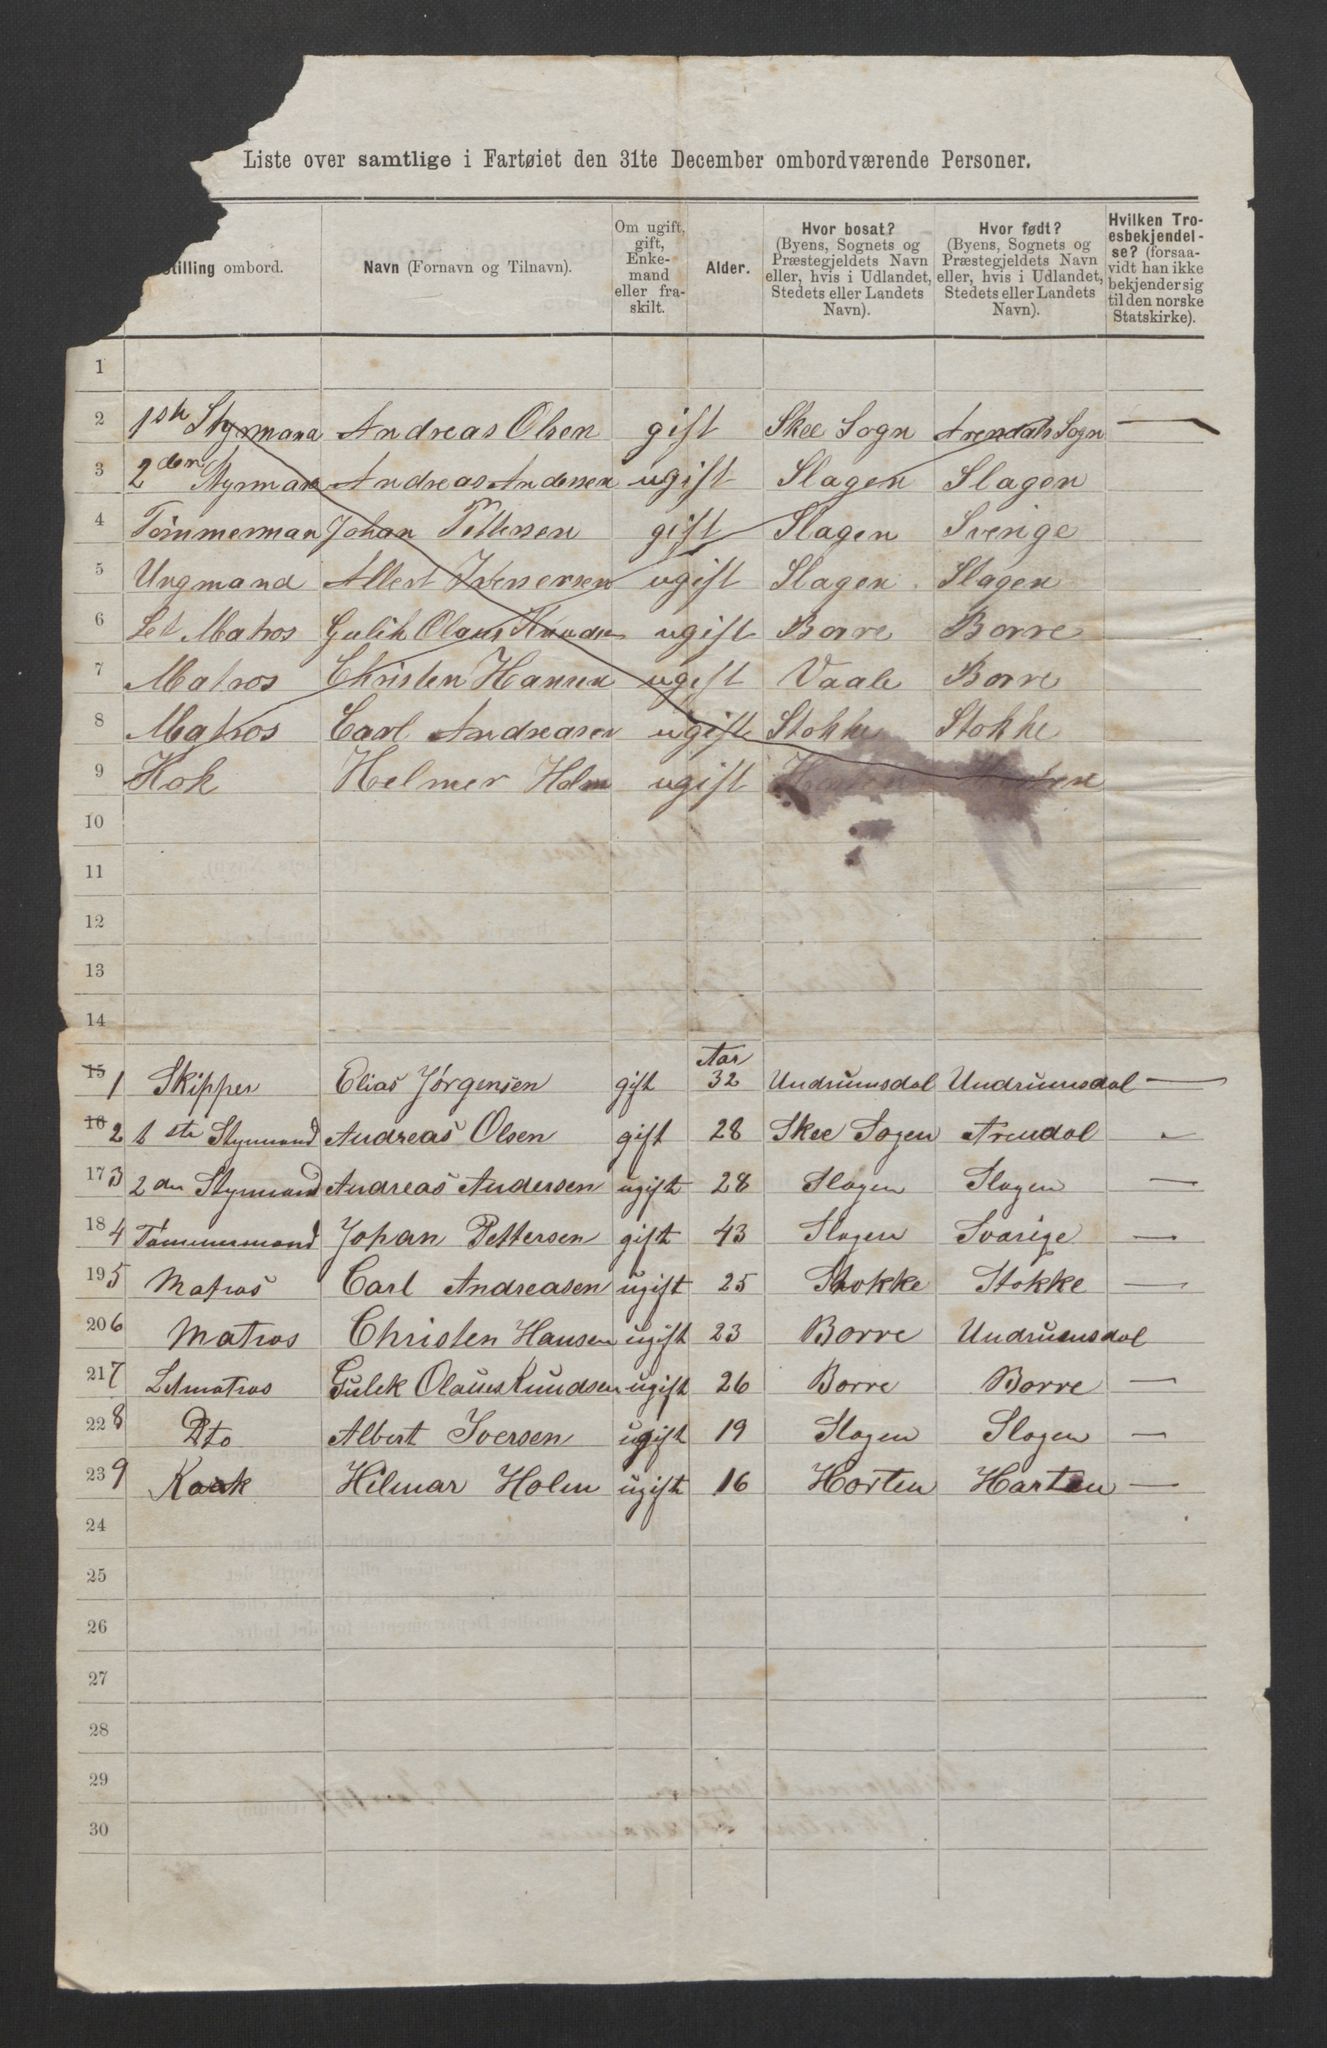 Liste over samtlige i Fartøiet den 31te December ombordværende Personer.
Stilling ombord.
Navn (Fornavn og Tilnavn).
Om ugift,
gift,
Enke-
mand
eller fra-
skilt.
Alder.
Hvor bosat?
(Byens, Sognets og
Præstegjeldets Navn
eller, hvis i Udlandet,
Stedets eller Landets
Navn).
Hvor født?
(Byens, Sognets og
Præstegjeldets Navn
eller, hvis i Udlandet,
Stedets eller Landets
Navn).
Hvilken Tro-
esbekjendel-
se? (forsaa-
vidt han ikke
bekjender sig
til den norske
Statskirke).
1
2 1ste Styrmand Andreas Olsen gift Skee Sogn Arendals Sogn —
3 2den Styrman Andreas Andersen ugift Slagen Slagen
4 Tömmerman Johan Pettersen gift Slagen Sverige
5 Ungmand Albert Iversen ugift Slagen Slagen
6 Let Matros Gulik Olaus Knudsen ugift Borre Borre
7 Matros Christen Hansen ugift Vaale Borre
8 Matros Carl Andreasen ugift Stokke Stokke
9 Kok Helmer Holm ugift Horten Horten
10
11
12
13
14
Aar
15 1 Skipper Elias Jørgensen gift 32 Undrumsdal Undrumsdal —
16 2 1ste Styrmand Andreas Olsen gift 28 Skee Sogen Arendal -
17 3 2den Styrmand Andreas Andersen ugift 28 Slagen Slagen —
18 4 Tømmermand Johan Pettersen gift 43 Slagen Svarige —
19 5 Matros Carl Andreasen ugift 25 Stokke Stokke —
20 6 Matros Christen Hansen ugift 23 Borre Undrumsdal
21 7 Letmatros Gulek Olaues Kundsen ugift 26 Borre Borre —
22 8 Dto Albert Iversen ugift 19 Slagen Slagen —
23 9 Kock Hilmar Holm ugift 16 Horten Harten —
24
25
26
27
28
29
30